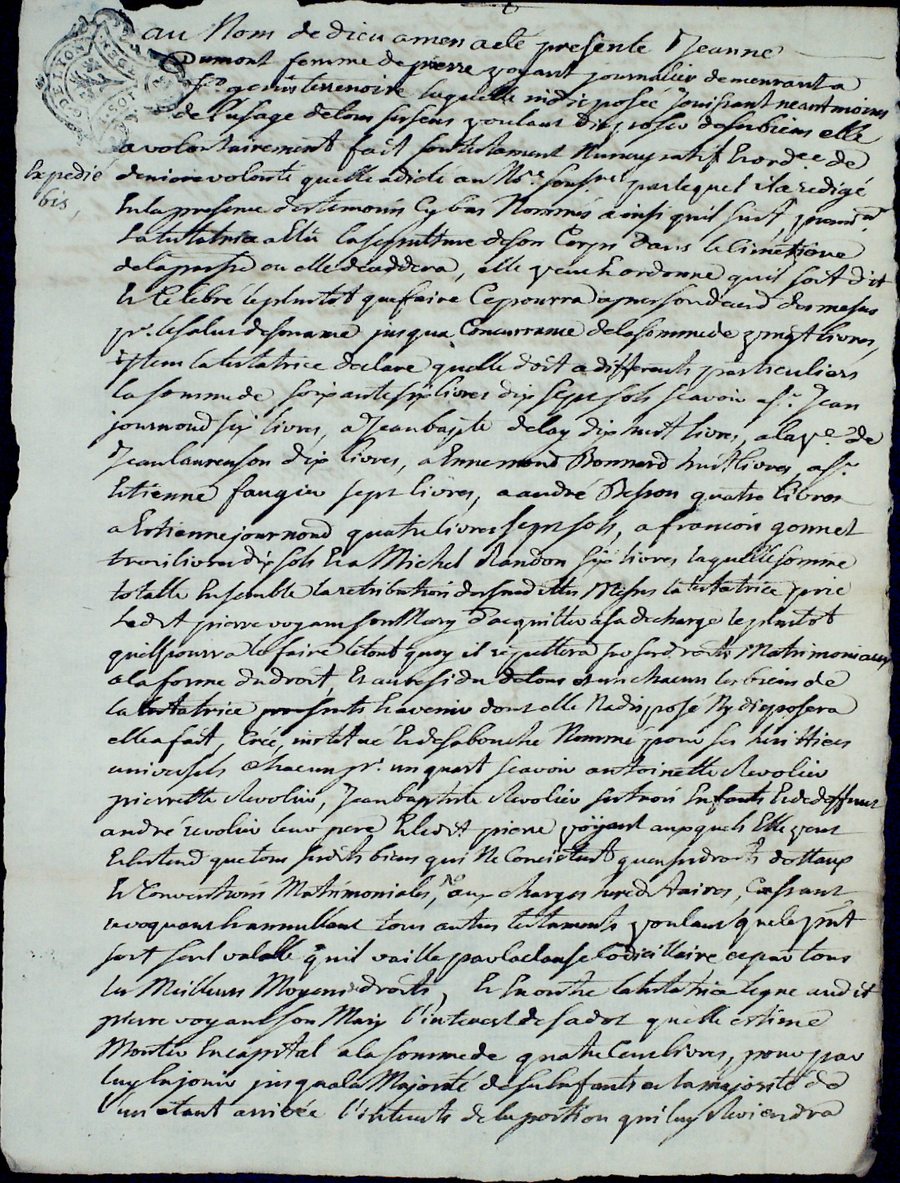 au Nom de dieu amen a eté presente Jeanne
Dumont femme de pierre voyant journalier demeurant a
St genis terrenoire laquelle indisposée Jouissant neantmoins
de l'usage de tous ses sens voulant disposer de ses biens elle
a volontairement fait son testament Nuncupatif et ordce de
Expedie
bis,
derniere volonté quelle a dicté au Nre sousné par lequel il a redigé
En la presence des temoins Cy bas Nommés ainsi quil suit, premt
La testatrice a Elu la sepulture de son Corps dans le Cimetiere
de la parsse ou elle deceddera, elle veut et ordonne quil soit dit
et Celebré le plustot que faire Ce pourra apres son deced des messes
pr le salut de son ame jusqua Concurrance de la somme de vingt livres,
item la testatrice declare quelle doit a differents particuliers
la somme de soixante six livres dix sept sols scavoir a Sr Jean
journoud six livres, a Jean baptte delay dix huit livres, a la ve de
Jean laurenson dix livres, a Ennemond Bonnard huit livres, a Sr
Etienne faugier sept livres, a andré Besson quatre livres
a Estienne journoud quatre livres sept sols, a francois gonnet
trois livres dix sols Et a Michel Randon six livres laquelle somme
totalle Ensemble la retribution desd messes la testatrice prie
Ledit pierre voyant son Mary d'acquitter a sa decharge le plustot
quil pourra le faire le tout quoy il repettera sur ses droits Matrimoniaux
a la forme du droit, Et au residu de tous et un chacuns les biens de
la testatrice presents et avenir dont elle Na disposé Ny disposera
elle a fait, Créé, institué Et de sa bouche Nommé pour ses heritiers
universels chacun pr un quart scavoir antoinette Revolier
pierrette Revolier, Jean baptiste Revolier ses trois Enfants Et de deffunt
andré revolier leur pere Et ledit pierre voyant auxquels Elle veut
Et Entend que tous sesdits biens qui Ne Concistent quen ses droits dottaux
Et Conventions Matrimoniales, aux charges hereditaires, Cassant
revoquant et annullant tous autres testaments voulant que le pnt
sort seul valable quil vaille par la clause Codicillaire et par tous
les Meilleurs Moyens de droits, Et En outre la testatrice legue audit
pierre voyant son Mary l'interest de sa dot quelle estime
Monter En capital a la somme de quatre Cent livres, pour par
luy En jouir jusqua la Majorité de ses Enfants et la majorité de
l'un etant arrivée l'interets de la portion qui luy Reviendra